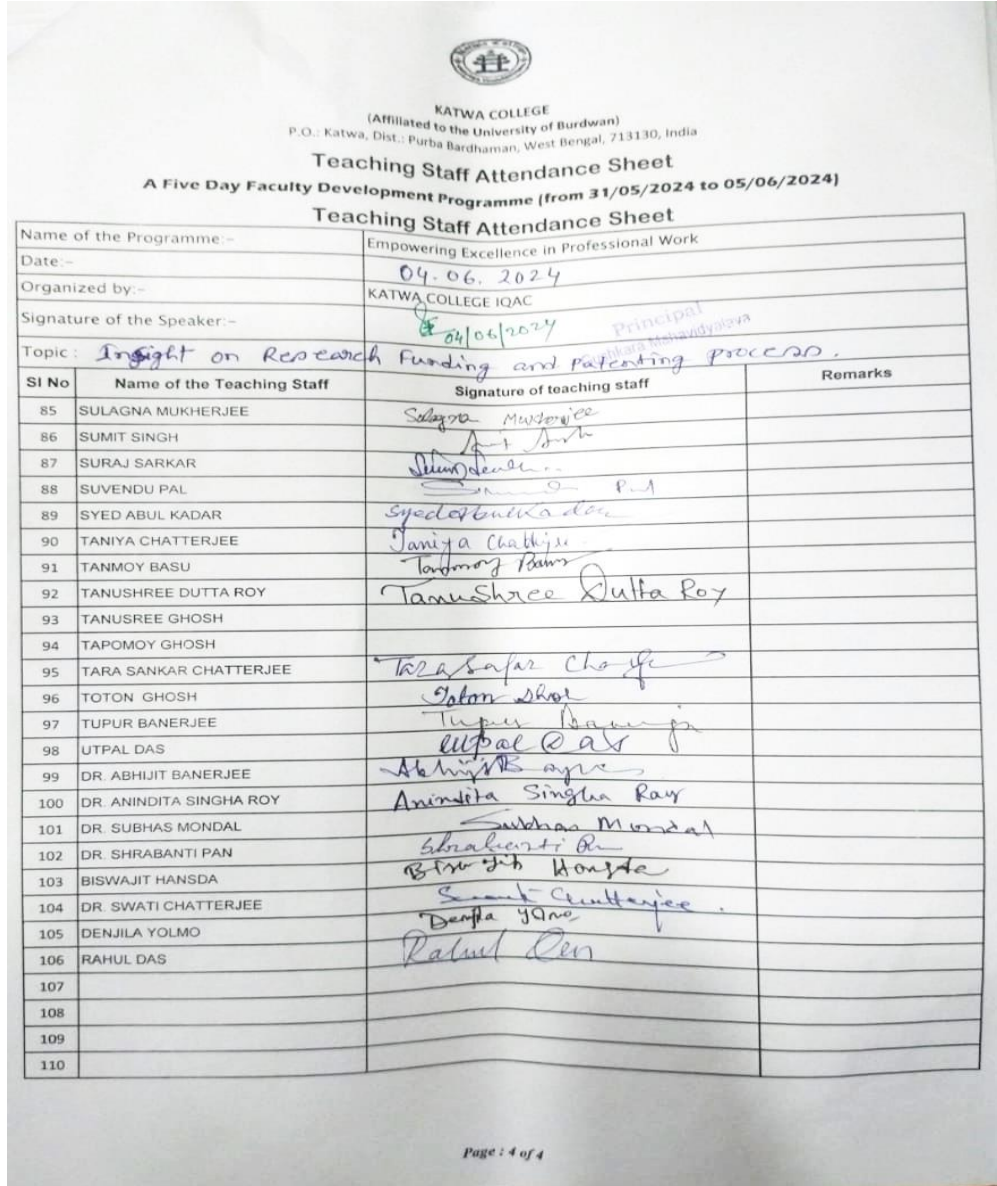 KATWA COLLEGE
(Affiliated to the University of Burdwan)
P.O.: Katwa, Dist.: Purba Bardhaman, West Bengal, 713130, India
Teaching Staff Attendance Sheet
A Five Day Faculty Development Programme (from 31/05/2024 to 05/06/2024)
Teaching Staff Attendance Sheet
Name of the Programme:- Empowering Excellence in Professional Work
Date:- 04.06.2024
Organized by:- KATWA COLLEGE IQAC
Signature of the Speaker:- 04/06/2024
Principal
Mahavidyalaya
Topic: Insight on Research Funding and Patenting process.
Sl No Name of the Teaching Staff Signature of teaching staff Remarks
85 SULAGNA MUKHERJEE Sulagna Mukherjee
86 SUMIT SINGH
87 SURAJ SARKAR
88 SUVENDU PAL
89 SYED ABUL KADAR Syed Abul Kadar
90 TANIYA CHATTERJEE Taniya Chatterjee
91 TANMOY BASU Tanmoy Basu
92 TANUSHREE DUTTA ROY TanuShree Dutta Roy
93 TANUSREE GHOSH
94 TAPOMOY GHOSH
95 TARA SANKAR CHATTERJEE
96 TOTON GHOSH Toton Ghosh
97 TUPUR BANERJEE Tupur Banerjee
98 UTPAL DAS Utpal Das
99 DR. ABHIJIT BANERJEE
100 DR. ANINDITA SINGHA ROY Anindita Singha Roy
101 DR. SUBHAS MONDAL Subhas Mondal
102 DR. SHRABANTI PAN Shrabanti Pan
103 BISWAJIT HANSDA Biswajit Hansda
104 DR. SWATI CHATTERJEE Chatterjee.
105 DENJILA YOLMO Denjila Yolmo
106 RAHUL DAS Rahul Das
107
108
109
110
Page : 4 of 4